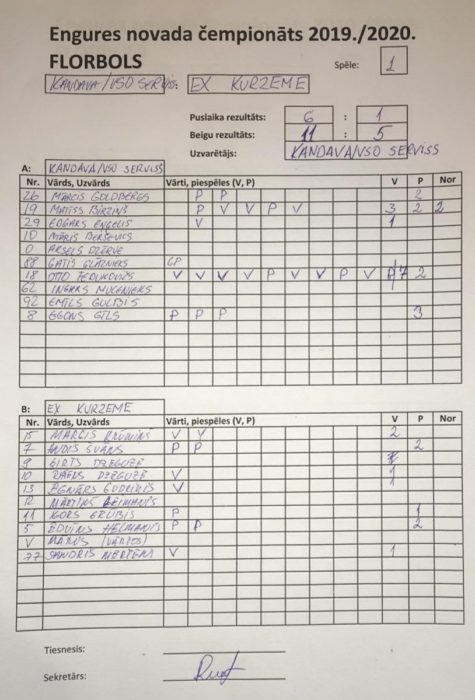 Engures novada čempionāts 2019./2020.
FLORBOLS Spēle: 1
KANDAVA/VSO SERVISS: EX KURZEME
Puslaika rezultāts: 6 : 1
Beigu rezultāts: 11 : 5
Uzvarētājs: KANDAVA/VSO SERVISS
A: KANDAVA/VSO SERVISS
Nr. Vārds, Uzvārds Vārti, piespēles (V, P) V P Nor
26 MĀRCIS GOLDBERGS P P 2
19 MATĪSS BIRZIŅŠ P V V P V 3 2 2
29 EDGARS ENGELIS V 1
10 MĀRIS BERŠEVICS
0 DZĒRVE
88 GATIS GP
18 OTTO V V V V P V V P V P 7 2
62 INGARS MUCENIEKS
92 EMĪLS GULBIS
8 EGONS P P P 3
B: EX KURZEME
Nr. Vārds, Uzvārds Vārti, piespēles (V, P) V P Nor
15 MĀRCIS KRŪMIŅŠ V V 2
7 ANDIS P P 2
9 ĢIRTS DZEGUZE
10 DZEGUZE V 1
13 V 1
12 MĀRTIŅŠ
11 P 1
5 EDVĪNS P P 2
V MĀRIS (VĀRTOS)
77 SANDRIS V 1
Tiesnesis:
Sekretārs: